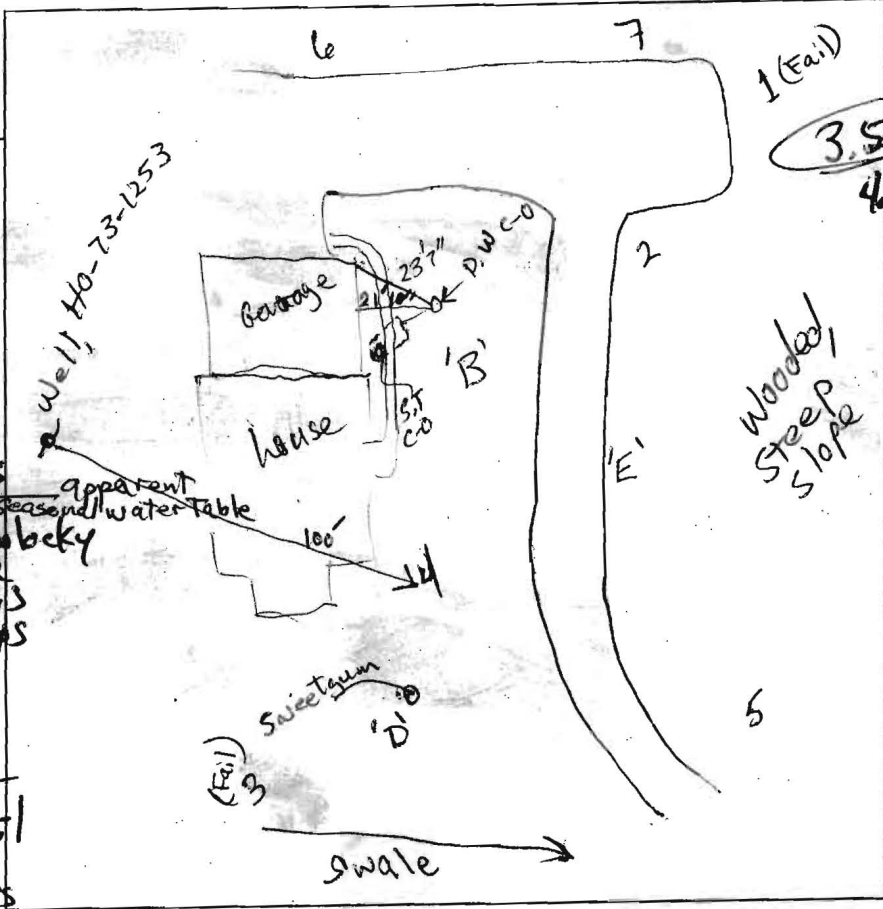 6
7
1 (Fail)
3.5
Well, HO-73-1253
23'7"
D.W C-O
2
Garage
'B'
S.T
C-O
house
Wooded,
Steep
slope
'E'
apparent
Seasonal water Table
100'
14
Sweetgum
'D'
5
(Fail)
3
Swale